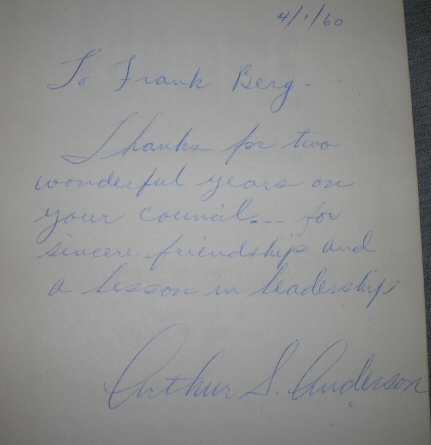 4/1/60
To Frank Berg -
Thanks for two
wonderful years on
your council... for
sincere friendship and
a lesson in leadership
Arthur S. Anderson